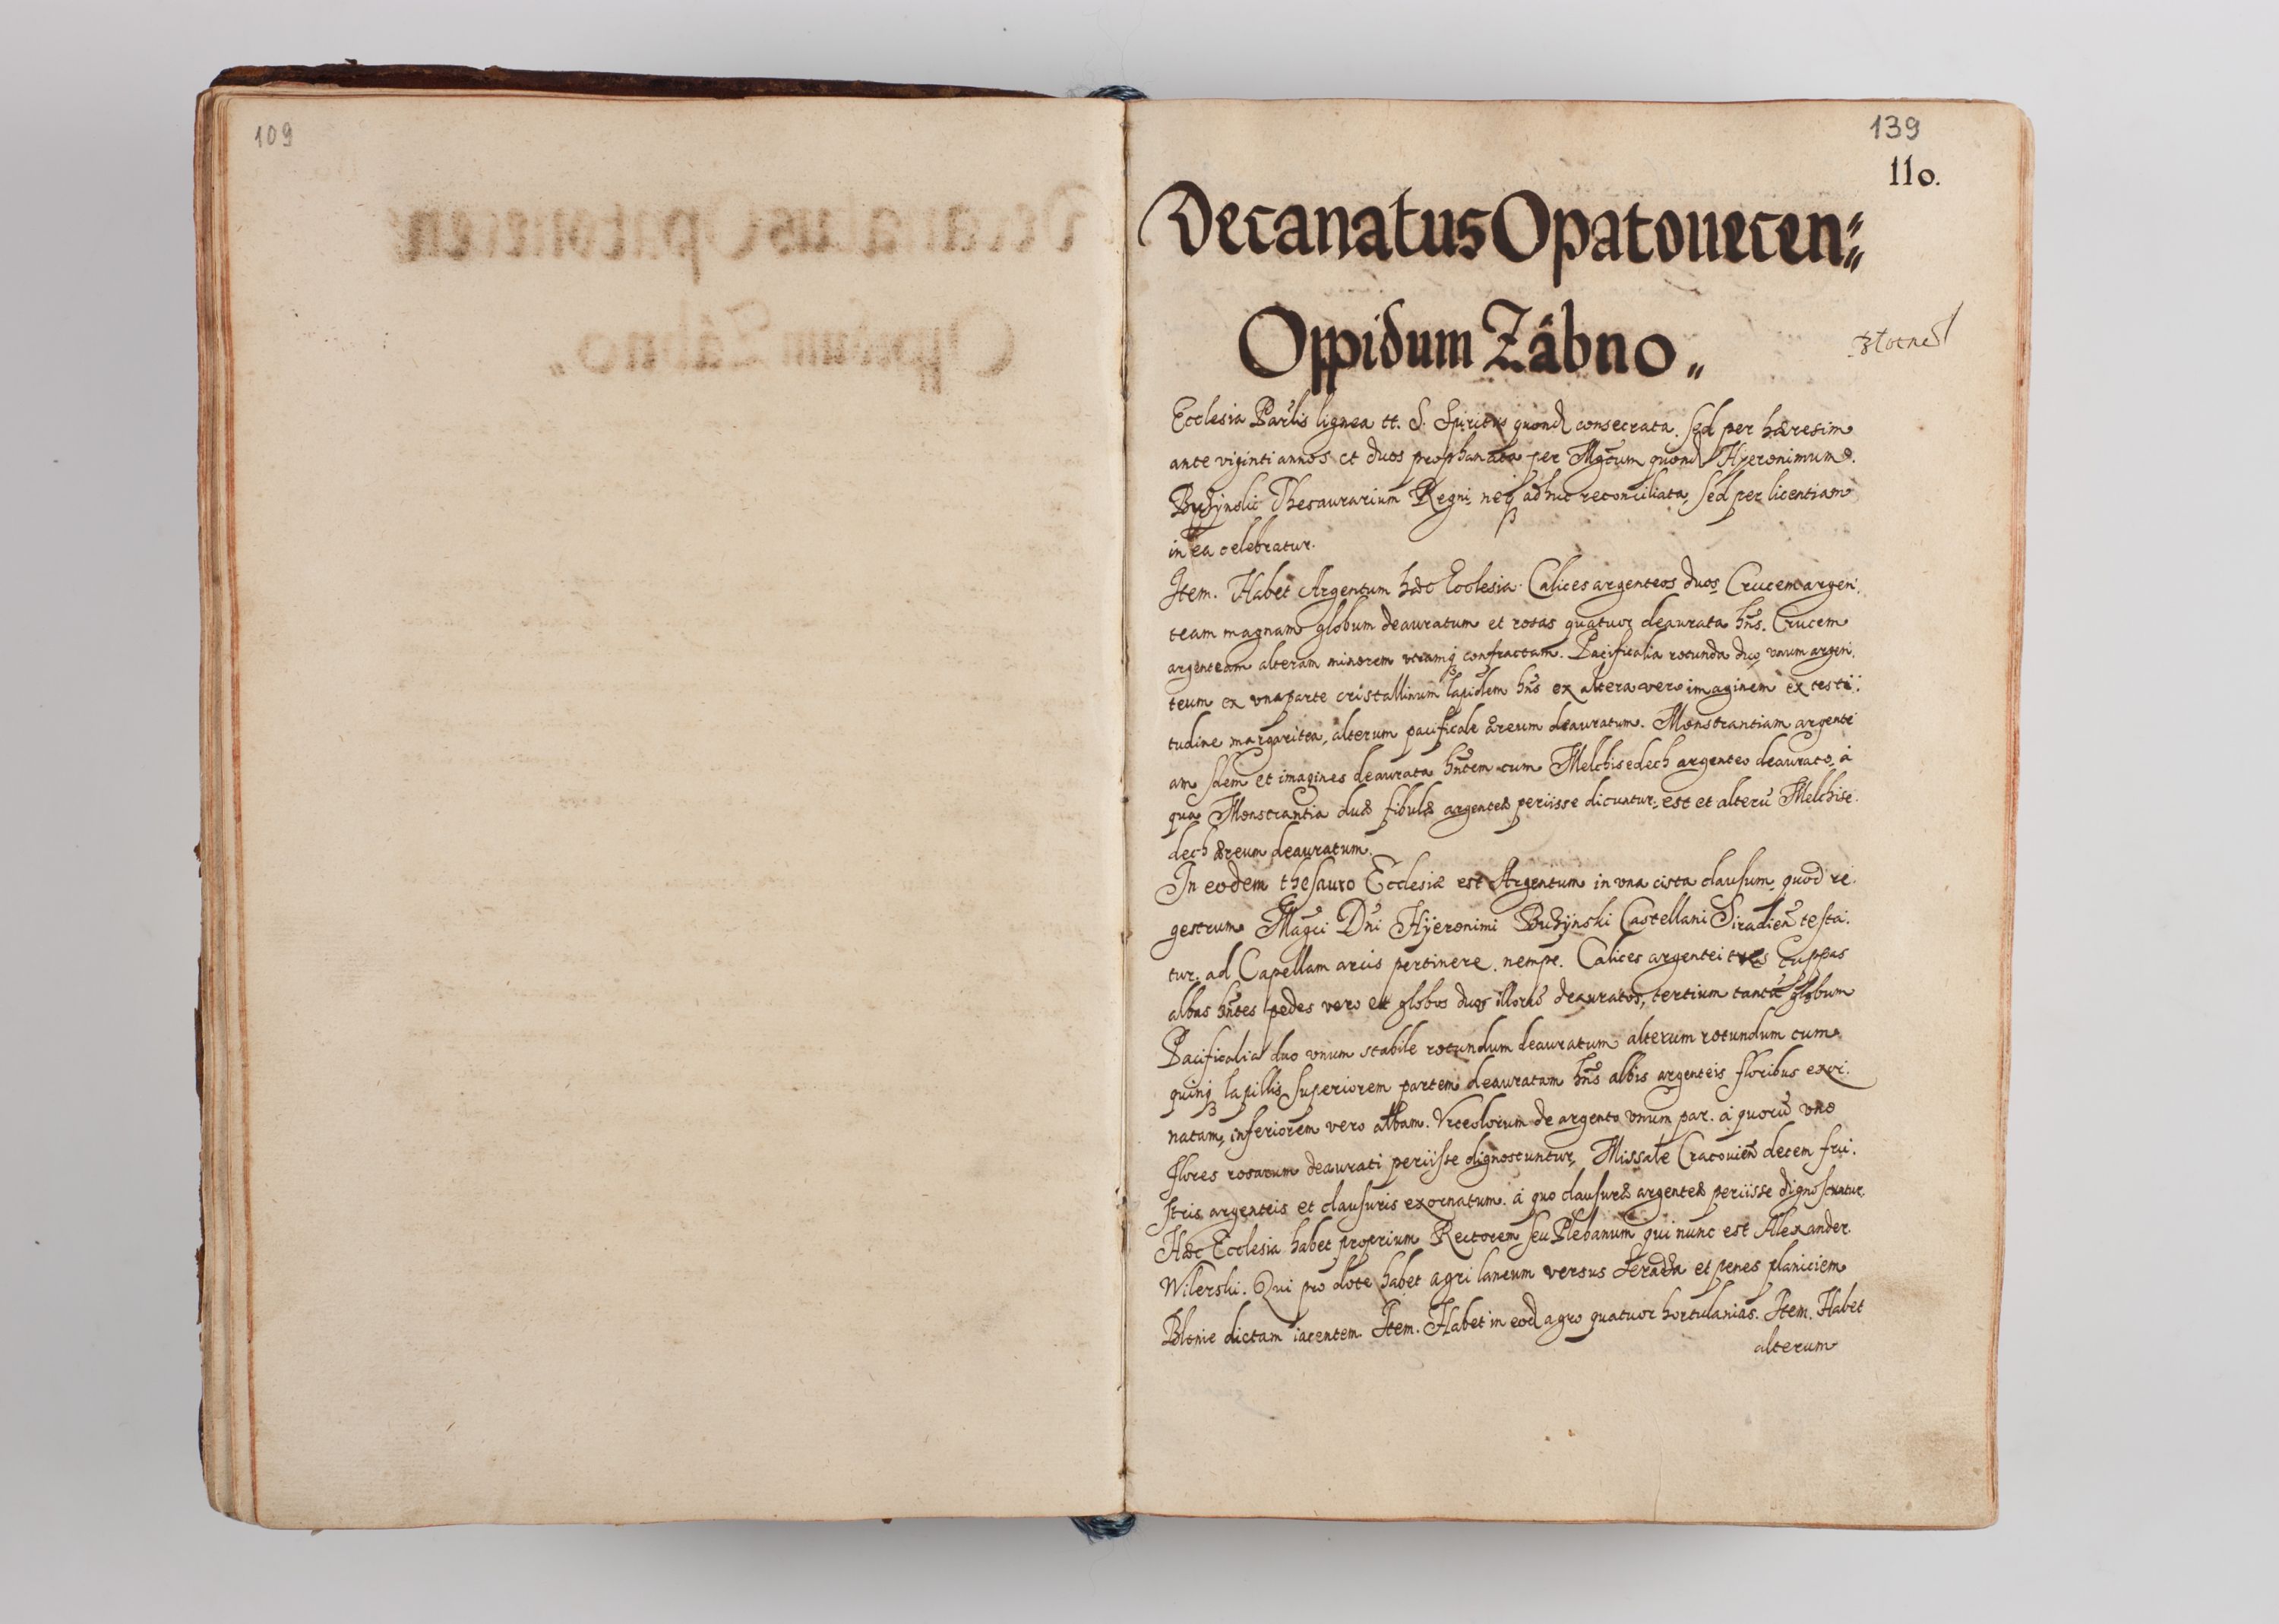 109
139
110.
Decanatus Opatouecen:
Oppidum Zábno.
Ecclesia Parlis lignea tt. S. Spiritus quond consecrata. Sed per hæresim
ante viginti annos et duos prophanata per Mgcum quond Hyeronimum
Buzynski Thesaurarium Regni, neq adhuc reconciliata, Sed per licentiam
in ea celebratur.
Item. Habet Argentum hæc Ecclesia. Calices argenteos duos, Crucem argen:
team magnam globum deauratum et rosas quatuor deaurata hñs. Crucem
argenteam alteram minorem utramq confractam. Pacificalia rotunda duo, vnum argen:
teum ex vna parte cristallinum lapidem hñs ex altera vero imaginem ex testi:
tudine margaritea, alterum pacificale æreum deauratum. Monstrantiam argente
am et imagines deaurata hñtem cum Melchisedech argenteo deaurato, á
qua Monstrantia duæ fibulæ argenteæ periisse dicuntur, est et alterũ Melchise:
dech æreum deauratum.
In eodem thesauro Ecclesiæ est Argentum in vna cista clausum, quod re:
gestrum Magci Dñi Hyeronimi Buzynski Castellani Siradieñ testa:
tur. ad Capellam arcis pertinere. nempe. Calices argentei tres cuppas
albas hñtes pedes vero et globos duos illorũ deauratos, tertium tantũ globum
Pacificalia duo vnum stabile rotundum deauratum alterum rotundum cum
quinq lapillis, superiorem partem deauratam hñs albis argenteis floribus exor:
natam, inferiorem vero albam. Vrceolorum de argento vnum par. á quorũ vno
flores rosarum deaurati periisse dignoscuntur, Missale Cracouieñ decem frui:
stris argenteis et clausuris exornatum. á quo clausuræ argenteæ periisse dignoscuntur.
Hæc Ecclesia habet proprium Rectorem seu Plebanum qui nunc est Alexander
Wilerski. Qui pro dote habet agri laneum versus et penes planiciem
Blonie dictam iacentem. Item. Habet in eod agro quatuor hortulanias. Item. Habet
alterum